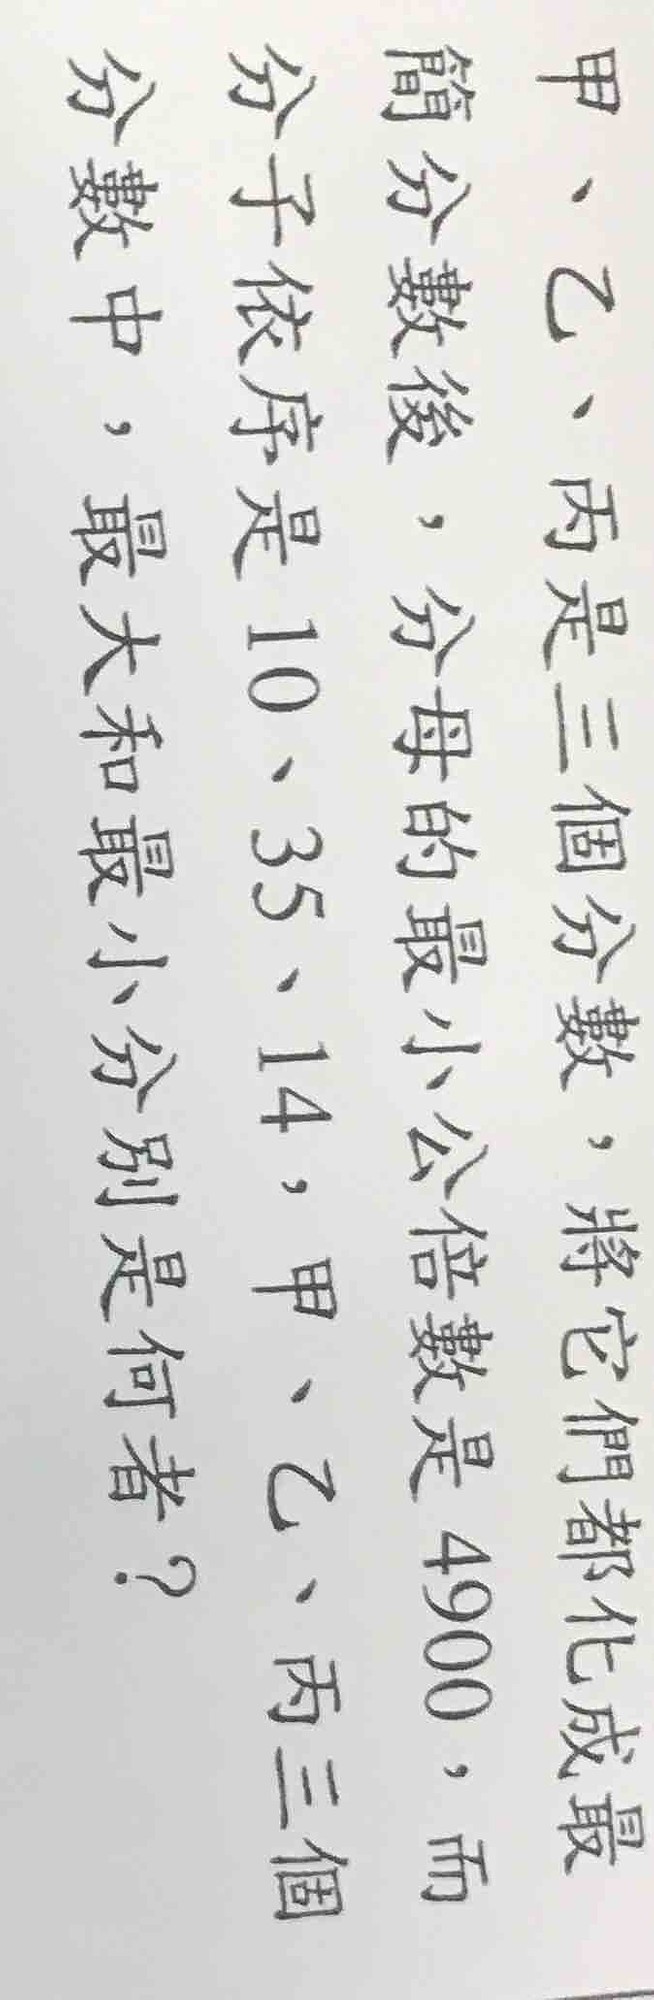 甲、乙、丙是三個分數，將它們都化成最
簡分數後，分母的最小公倍數是 4900，而
分子依序是 10、35、14，甲、乙、丙三個
分數中，最大和最小分別是何者？